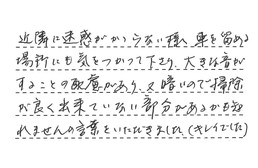 近隣に迷惑がかからない様、車を留める
場所にも気をつかって下さり、大きな音が
することの配慮があり、又暗いので掃除
が良く出来ていない部分があるかも知
れませんの言葉をいただきました(キレイでした)